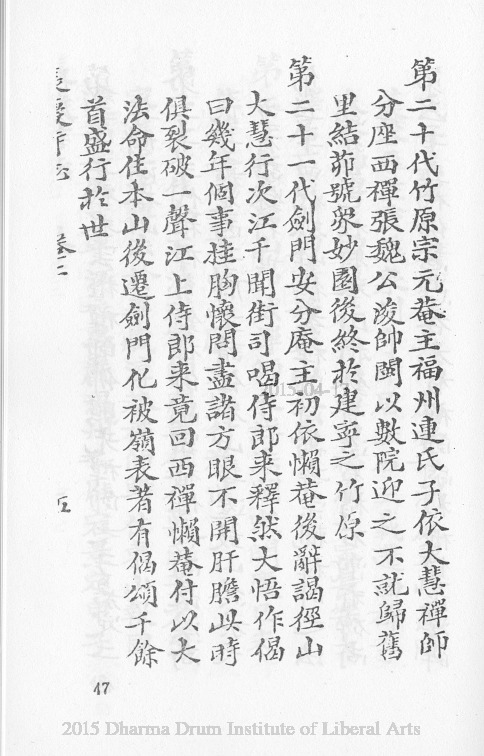 第二十代竹原宗元菴主福州連氏子依大慧禪師
分座西禪張魏公浚帥閩以數院迎之不就歸舊
里結茆號眾妙園後終於建寧之竹原
第二十一代劍門安分庵主初依懶菴後辭謁徑山
大慧行次江干聞街司喝侍郎来釋然大悟作偈
曰幾年個事挂胸懷問盡諸方眼不開肝膽此時
俱裂破一聲江上侍郎来竟回西禪懶菴付以大
法命住本山後遷劍門化被嶺表著有偈頌千餘
首盛行於世
卷二
47
2015 Dharma Drum Institute of Liberal Arts